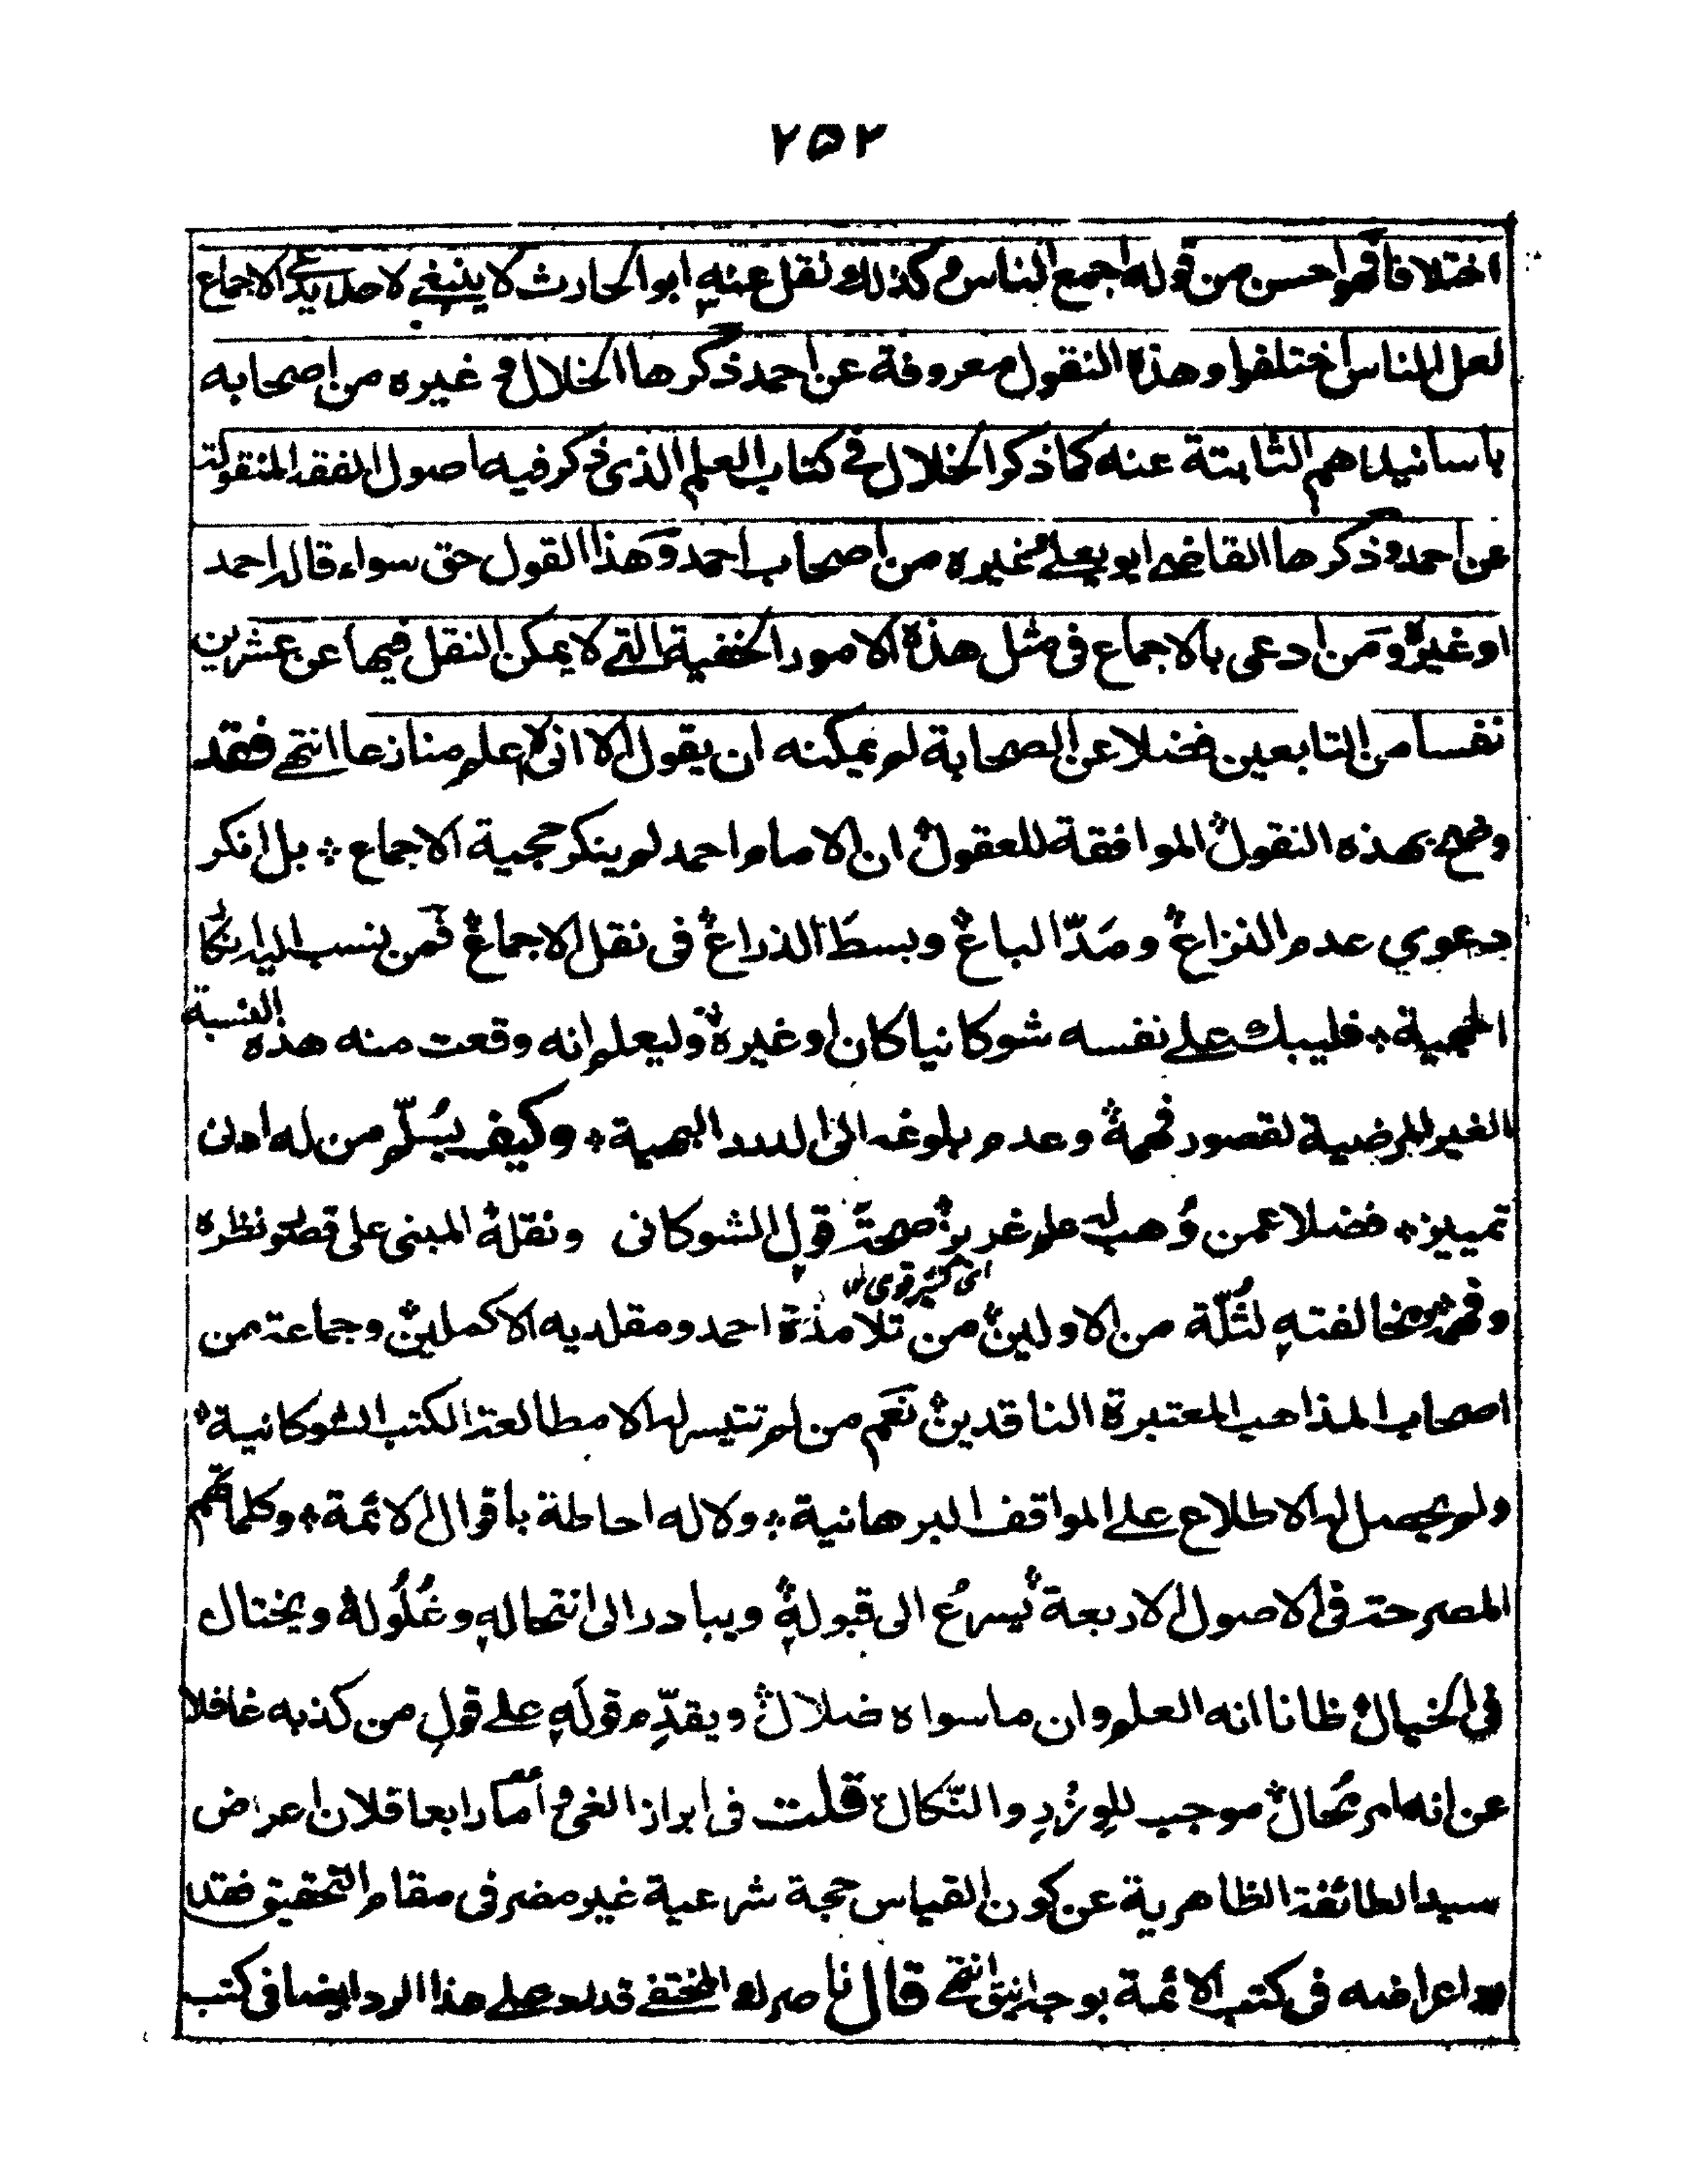 ٢٥٢
اختلافا فهو احسن من قوله اجمع الناس وكذلك نقل عنه ابو الحارث لا ينبغي لاحد يدعي الاجماع
لعل الناس اختلفوا وهذه النقول معروفة عن احمد ذكرها الخلال و غيره من اصحابه
باسانيدهم الثابتة عنه كما ذكر الخلال في كتاب العلم الذى ذكر فيه اصول الفقه المنقولة
عن احمد وذكرها القاضي ابو يعلى وغيره من اصحاب احمد وهذا القول حق سواء قاله احمد
او غيره ومن ادعى بالاجماع فى مثل هذه الامور الخفية التي لا يمكن النقل فيها عن عشرين
نفسا من التابعين فضلا عن الصحابة لم يمكنه ان يقول الا انى لا اعلم منازعا انتهى فقد
وضح بهذه النقول الموافقة للعقول ان الامام احمد لم ينكر حجية الاجماع ؞ بل انكر
دعوي عدم النزاع ومَدّ الباع وبسط الذراع فى نقل الاجماع فمن ينسب اليه انكار
الحجية ؞ فليبك على نفسه شوكانيا كان او غيره وليعلم انه وقعت منه هذه النسبة
الغير المرضية لقصور فهمه وعدم بلوغه الى الدرر البهية ؞ وكيف يُسلّم من له ادنى
تمييز ؞ فضلا عمن وُهب له علم غريز صحة قول الشوكانى ونقله المبنى على قصور نظره
وفهمه ومخالفته لثُلّة من الاولين من تلامذة احمد ومقلديه الاكملين وجماعة من
اى كثير قوى
اصحاب المذاهب المعتبرة الناقدين نَعَم من لم تتيسر له الا مطالعة الكتب الشوكانية
ولم يحصل له الاطلاع على المواقف البرهانية ؞ ولا له احاطة باقوال الائمة ؞ وكلماتهم
المصرحة فى الاصول الاربعة يُسرعُ الى قبوله ويبادر الى انتحاله وغُلُوله ويختال
فى الخيال ظانا انه العلم وان ما سواه ضلال ويقدِّم قولَه على قولِ من كذبه غافلا
عن انه امر مُحال موجب للوِزْرِ والنَّكال قلت فى ابراز الغي واما رابعا فلان اعراض
سيد الطائفة الظاهرية عن كون القياس حجة شرعية غير مضر فى مقام التحقيق فقد
رد اعراضه فى كتب الائمة بوجه انيق انتهى قال ناصرك المختفى قد رد على هذا الرد ايضا فى كتب